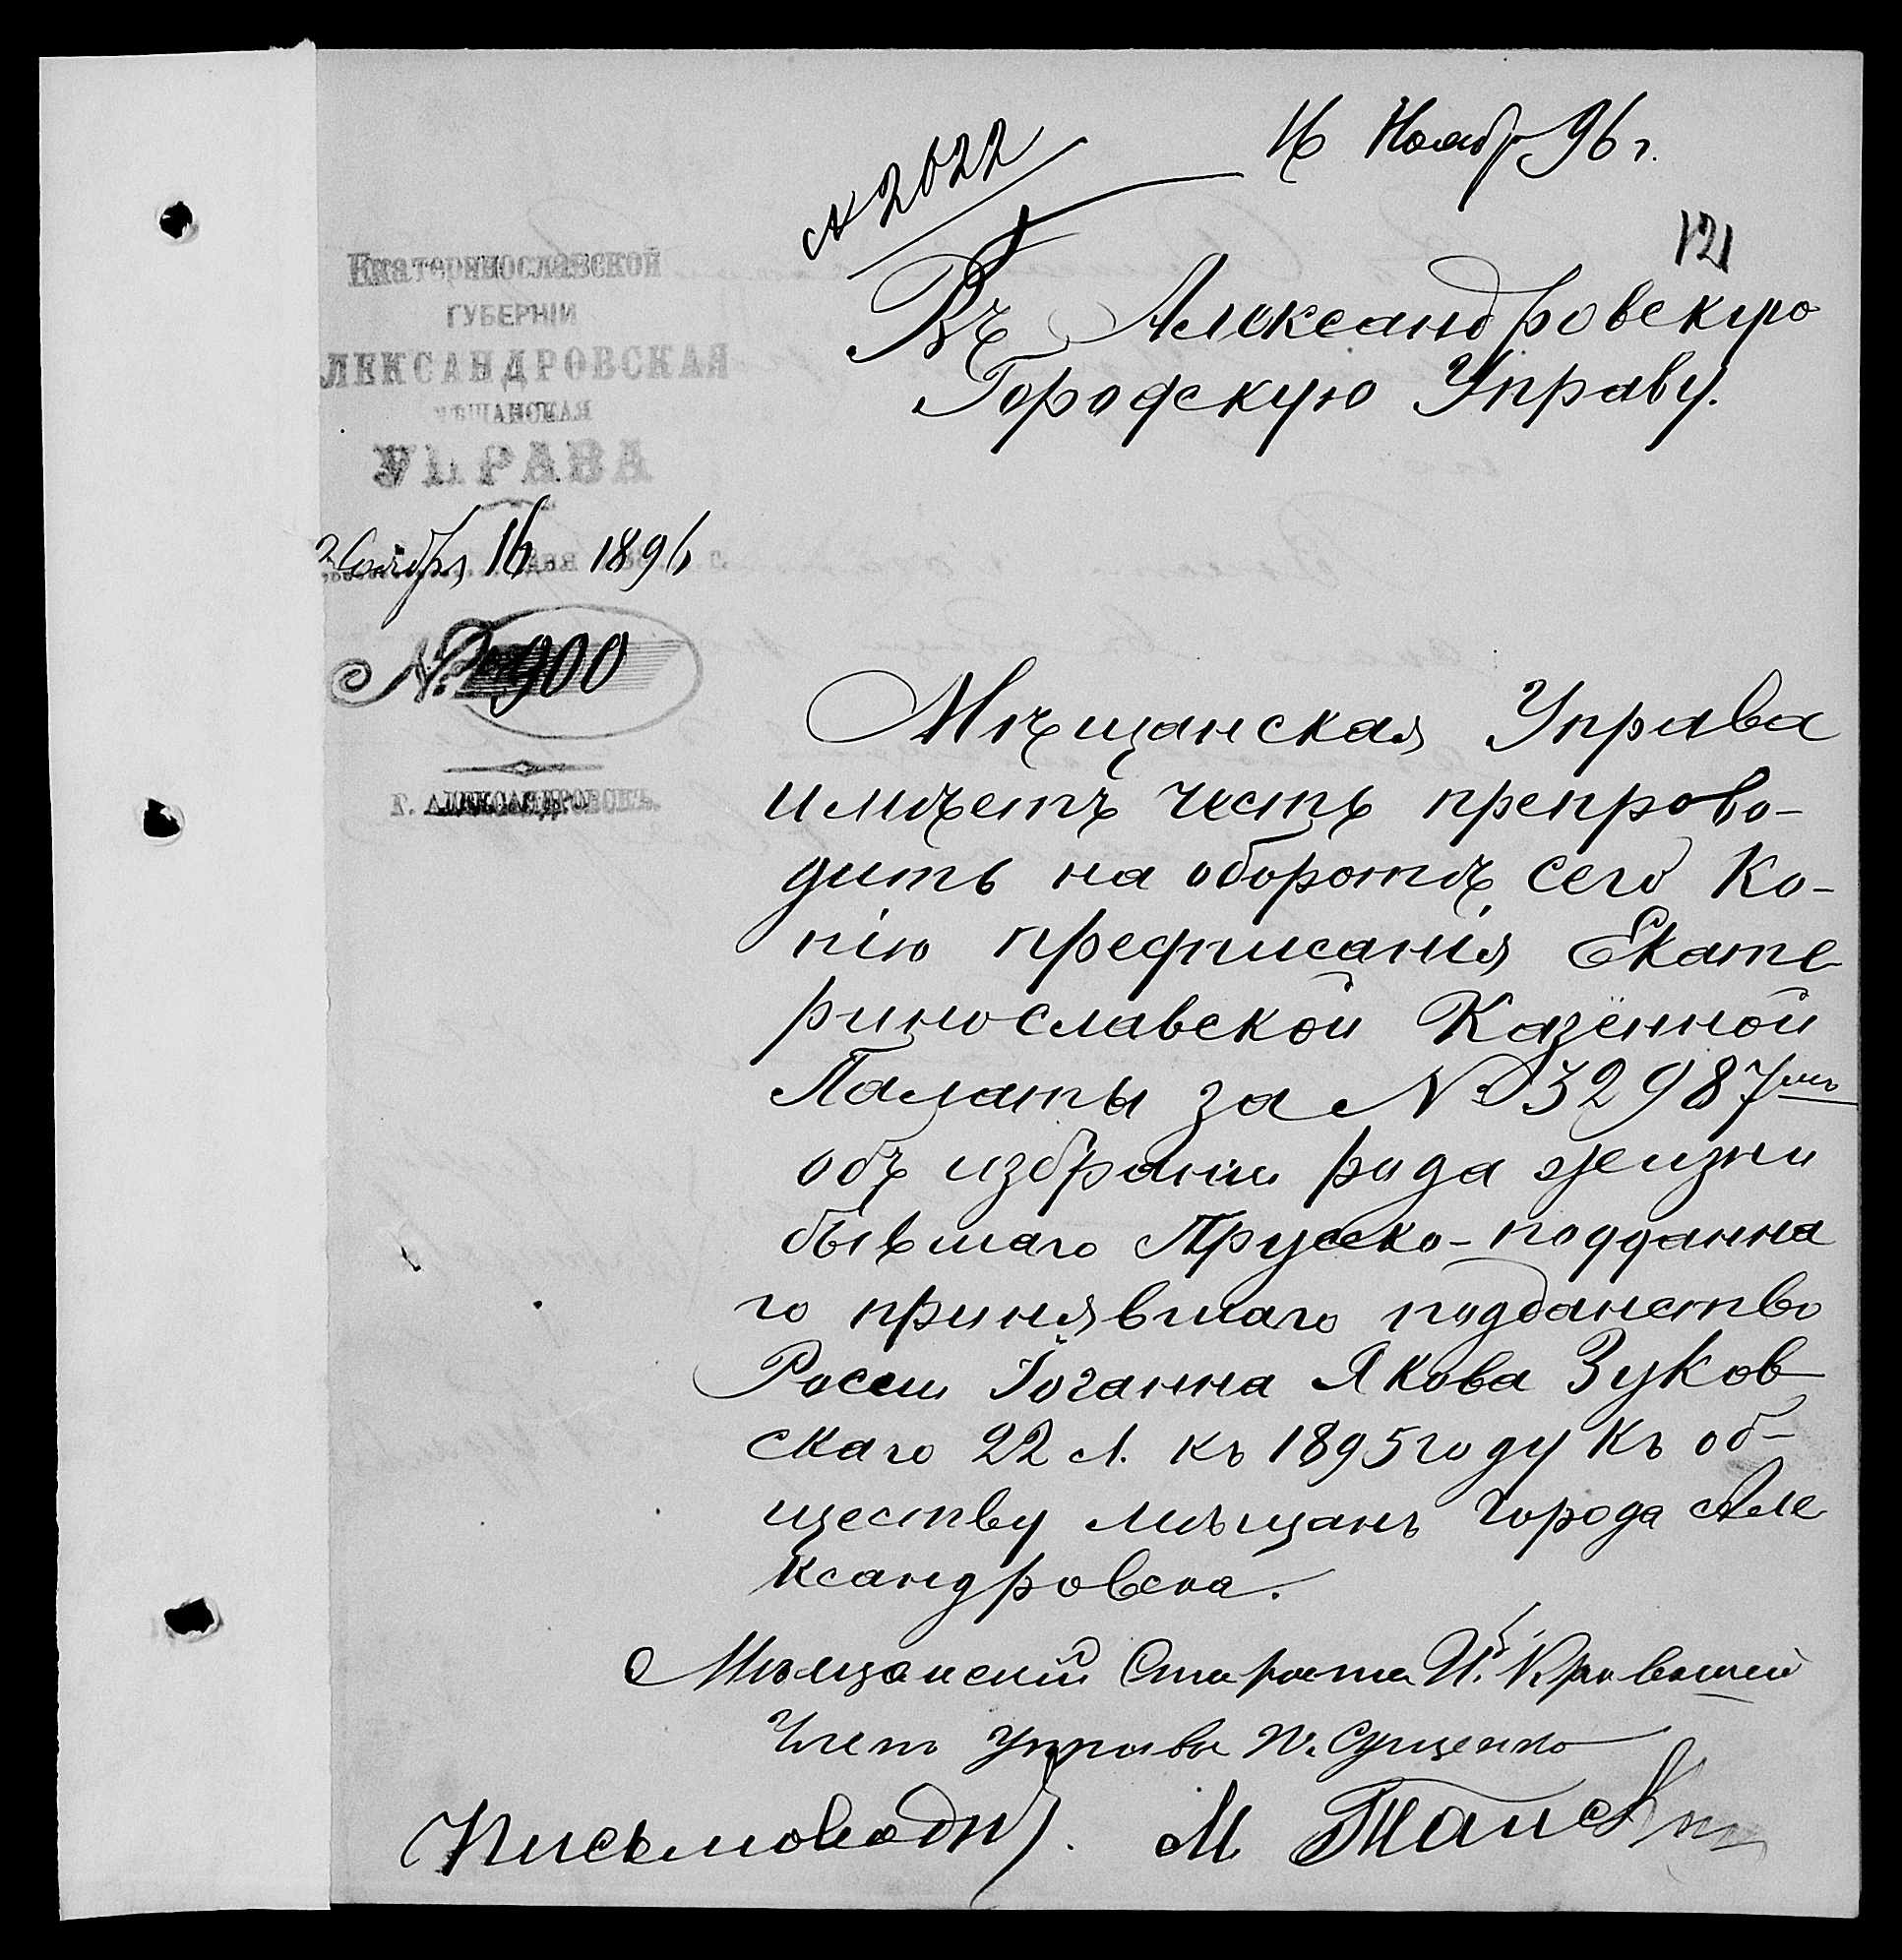 16 Ноябр 96 г.
№ 2622
121
Екатеринославской
ГУБЕРНІИ
АЛЕКСАНДРОВСКАЯ
МѢЩАНСКАЯ
УПРАВА
Ноября 16 дня 1896 г.
№ 900
Г. АЛЕКСАНДРОВСКЪ.
Въ Александровскую
Городскую Управу.
Мѣщанская Управа
имѣетъ честь препрово-
дить на оборотѣ сего ко-
пію предписанія Екате
ринославской Казенной
Палаты за № 32987
объ избраніи рода жизни
бывшаго Прусско-подданна
го принявшаго подданство
Россіи Іоганна Якова Зуков
скаго 22 л. къ 1895 году къ об-
ществу мѣщанъ города Але
ксандровска.
Мѣщанскій Староста И.
Членъ Управы И. Сущенко
Письмоводит. М